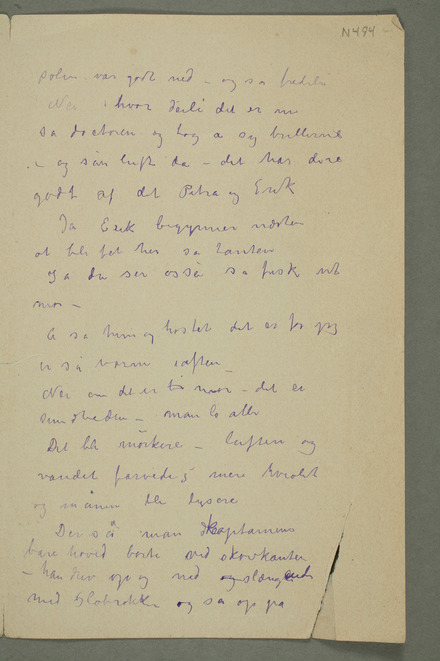 N 494
solen var godt ned – og så fredeli
Nei hvor deili det er nu
sa doctoren og tog a sig brillerne
– og sån luft da – det har dere
godt af det Petra og Erik
Ja Erik begynner næsten
at bli fet her sa tanten
og a du ser også så frisk ut
mor –
A sa hun og hostet det es for jeg
er så varm iaften –
Nei om det er mor – det er
sundheden – man lo alle
Det ble mörkere – luften og
vandet farvedes mere
og månen ble lysere
Der så man kaptainens
bare hoved borte ved skovkanten
– han drev op og ned
med og så op på